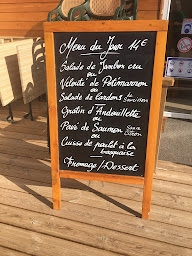 Menu du Jour 14€
Salade de Jambon cru
ou
Velouté de Potimarron
ou
Salade de Lardons
Gratin d'Andouillette
ou
Pavé de Saumon Sauce Citron
ou
Cuisse de poulet à la
basquaise
Fromage/Dessert